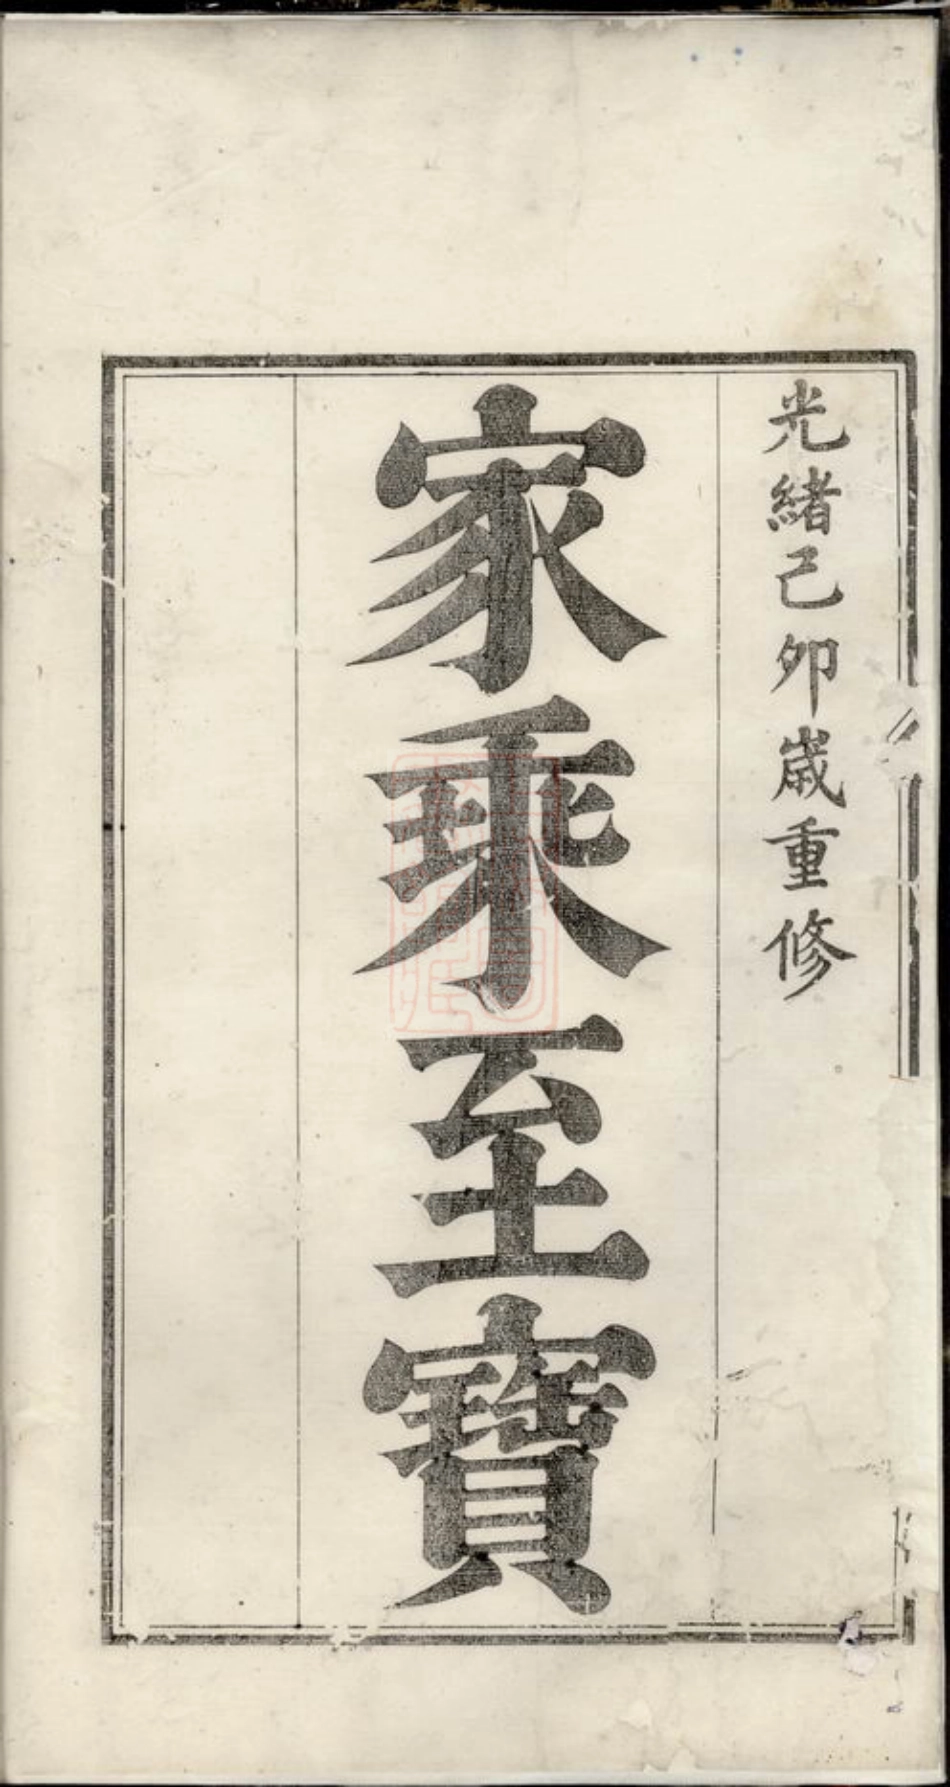 光緒己卯歲重修
家乘至寶